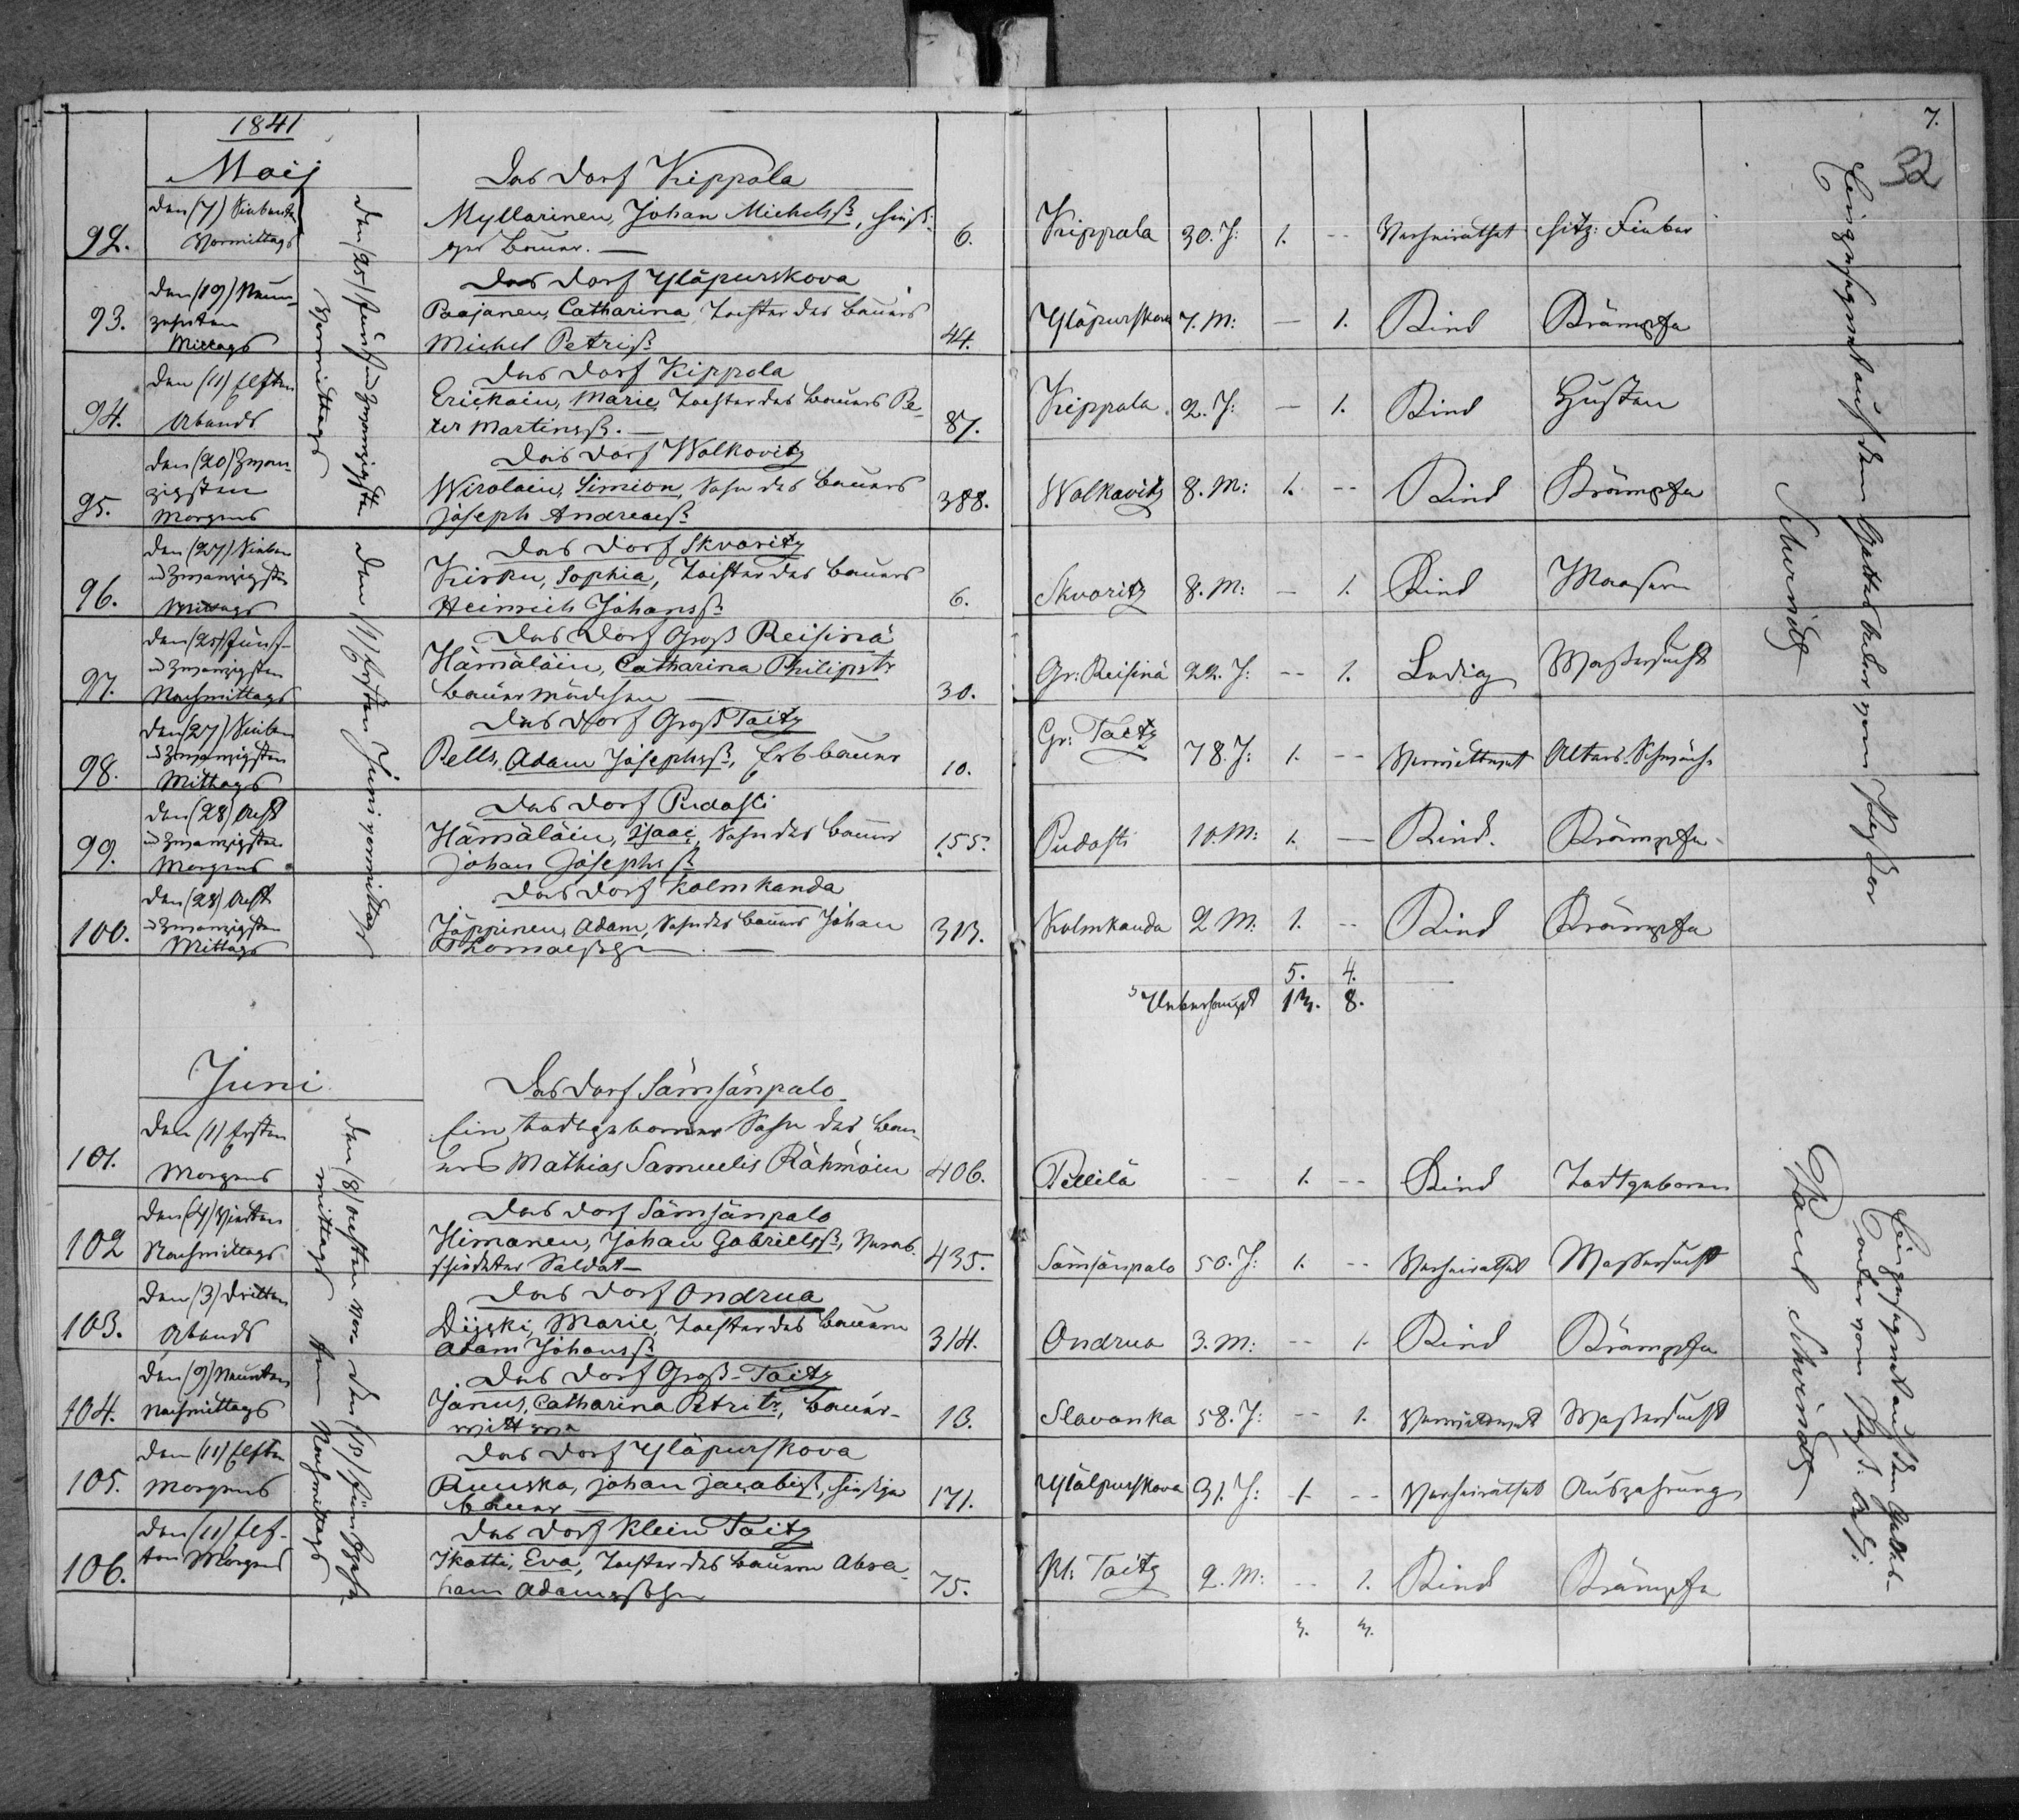 1841
7.
32
Maij
Das Dorf Kippola
92.
den (7) Siebenten
Vormittags
Myllarinen, Johan Michelsß.
Bauer. —
6.
Kippala 30. J: 1. -- Verheirathet hitz: Fieber
Das Dorf Yläpurskova
93.
den (19) Neun-
zehnten
Mittags
Paajanen, Catharina, Tochter des Bauers
Michel Petriß.
44.
Yläpurskova 7. M: — 1. Kind Krämpfe
Das Dorf Kippola
94.
den (11) Elften
Abends
Erickain, Marie, Tochter des Bauers Pe-
ter Martinsß. —
87.
Kippala. 2. J: — 1. Kind Husten
Das Dorf Wolkovitz
95.
den (20) Zwan-
zigsten
Morgens
Wirolain, Simion, Sohn des Bauers
Joseph Andreaeß.
388.
Wolkovitz 8. M: 1. -- Kind Krämpfe
Das Dorf Skvoritz
96.
den (27) Sieben
u Zwanzigsten
Mittags
Kirku, Sophia, Tochter des Bauers
Heinrich Johansß.
6.
Skvoritz 8. M: — 1. Kind Masern
Das Dorf Groß Reisinä
97.
den (25) Fünf-
u Zwanzigsten
Nachmittags
Hämäläin, Catharina Philipstr
Bauermädchen —
30.
Gr: Reisinä 22. J: -- 1. Ledig Waßersucht
Das Dorf Groß Taitz
98.
den (27) Sieben
u Zwanzigsten
Mittags
Pells, Adam Josephsß., Erbbauer
10.
Gr: Taitz 78. J: 1. -- Verwittwet Alters-Schwäche
Das Dorf Pudosti
99.
den (28) Acht
u Zwanzigsten
Morgens
Hämäläin, Isaac, Sohn des Bauers
Johan Josephsß.
155.
Pudosti 10. M: 1. — Kind. Krämpfe
Das Dorf Kolmkanda
100.
den (28) Acht
u Zwanzigsten
Mittags
Jäppinen, Adam, Sohn des Bauers Johan
313.
Kolmkanda 2 M. 1. -- Kind Krämpfe
den (25) Fünfundzwanzigsten
Vormittags
den (1) Ersten Juni vormittags
Eingesegnet auf dem Gottes Acker vom Pastor
Schwindt
5. 4.
Ueberhaupt 13. 8.
Juni
Das Dorf Sämsänpalo
101.
den (1) Ersten
Morgens
Ein todtgeborner Sohn des Bau-
ers Mathias Samuelis Rähmöin
406.
Pellilä -- 1. -- Kind Todtgeboren
Das Dorf Sämsänpalo
102
den (4) Vierten
Nachmittags
Himanen, Johan Gabrielsß., Verab-
schiedeter Soldat —
435.
Sämsänpalo 50. J: 1. -- Verheirathet Waßersucht
Das Dorf Ondrua
103.
den (3) Dritten
Abends
Dijski, Marie, Tochter des Bauern
Adam Johansß.
314.
Ondrua 3. M: -- 1. Kind Krämpfe
Das Dorf Groß-Taitz
104.
den (9) Neunten
Nachmittags
Janus, Catharina Petritr, Bauer-
wittwe
13.
Slavanka 58. J: -- 1. Verwittwet Waßersucht
Das Dorf Yläpurskova
105.
den (11) Elften
Morgens
Ruuska, Johan Jacobisß.
Bauer —
171.
Yläpurskova 31. J: 1. -- Verheirathet Auszehrung
Das Dorf Klein Taitz
106.
den (11) Elf-
ten Morgens
Ikatti, Eva, Tochter des Bauern Abra-
ham Adamssohn
75.
Kl: Taitz 2. M: -- 1. Kind Krämpfe
den (8) Achten Vor-
mittags
den (15) Fünfzehn-
ten Nachmittags
Eingesegnet auf dem Gottes-
acker vom Past: Adj:
Paul Schwindt
3. 3.